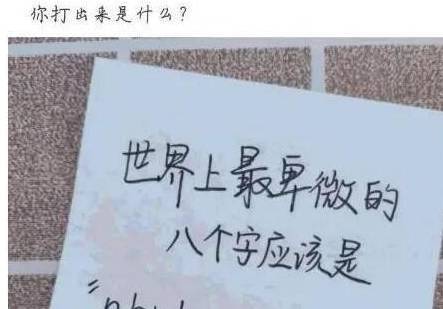 你打出来是什么?
世界上最卑微的
八个字应该是